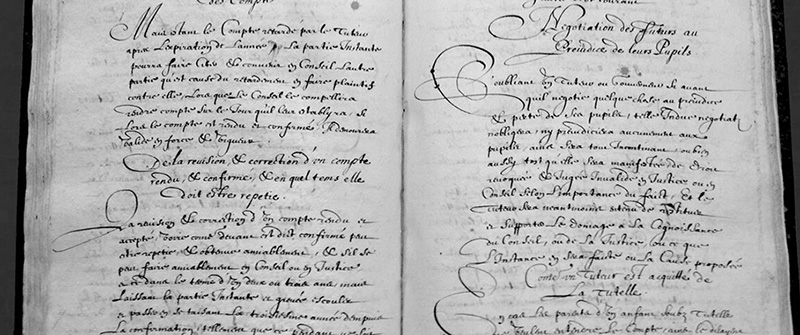 des Compte
Mais stant le Compte retardé par le Tuteur
apres l'expiration de l'année, La partie Instante
pourra faire citer et convenir en Conseil l'autre
partie qui est cause du retardement en faire plaintif
contre elle, Lors que le Conseil le compellira
rendre compte sur le Jour qu'il leur establyra. Et
lors le compte est rendu et confirmé, Il demeurera
valide en force et vigueur.
De la revision, et correction d'un compte
rendu, et confirmé, et en quel tems elle
doit estre repetie.
La revision et correction d'un compte rendu et
accepté, voire comé devant est dit confirmé peut
etre repetie et obtenue amiablement, et S'il se
peut faire amiablement en Conseil ou en Justice
a ce dans le terme d'un deux ou trois ans, mais
Laissant la partie Instante et grevée escouler
et passer en se taisant la troisiesme année depuis
la confirmation, tellement que ce pendant ne soit
Negotiation des Tuteurs au
Prejudice de leurs Pupils
S'oubliant un Tuteur ou Gouverneur si avant
qu'il negotie quelque chose au prejudice
et perte de Sea pupils, telle Indue negotiat
n'obligera, ny prejudiciera aucunement aux
pupils, ains Sera tout Incontinant, ou bien
aussy tost qu'elle Sera manifestée de droit
revoquée et Jugée Invalide en Justice ou en
Conseil Selon l'Importance du faict, Et le
Tuteur Sera neantmoins entenu de restituer
et Supporter le domage a la Cognoissance
du Conseil, ou de la Justice, ou ce que
l'Instance en Sera faicte ou la Cause proposée
Come un Tuteur est acquitté de
La Tutelle.
En cas les parents d'un enfant Soubz Tutelle